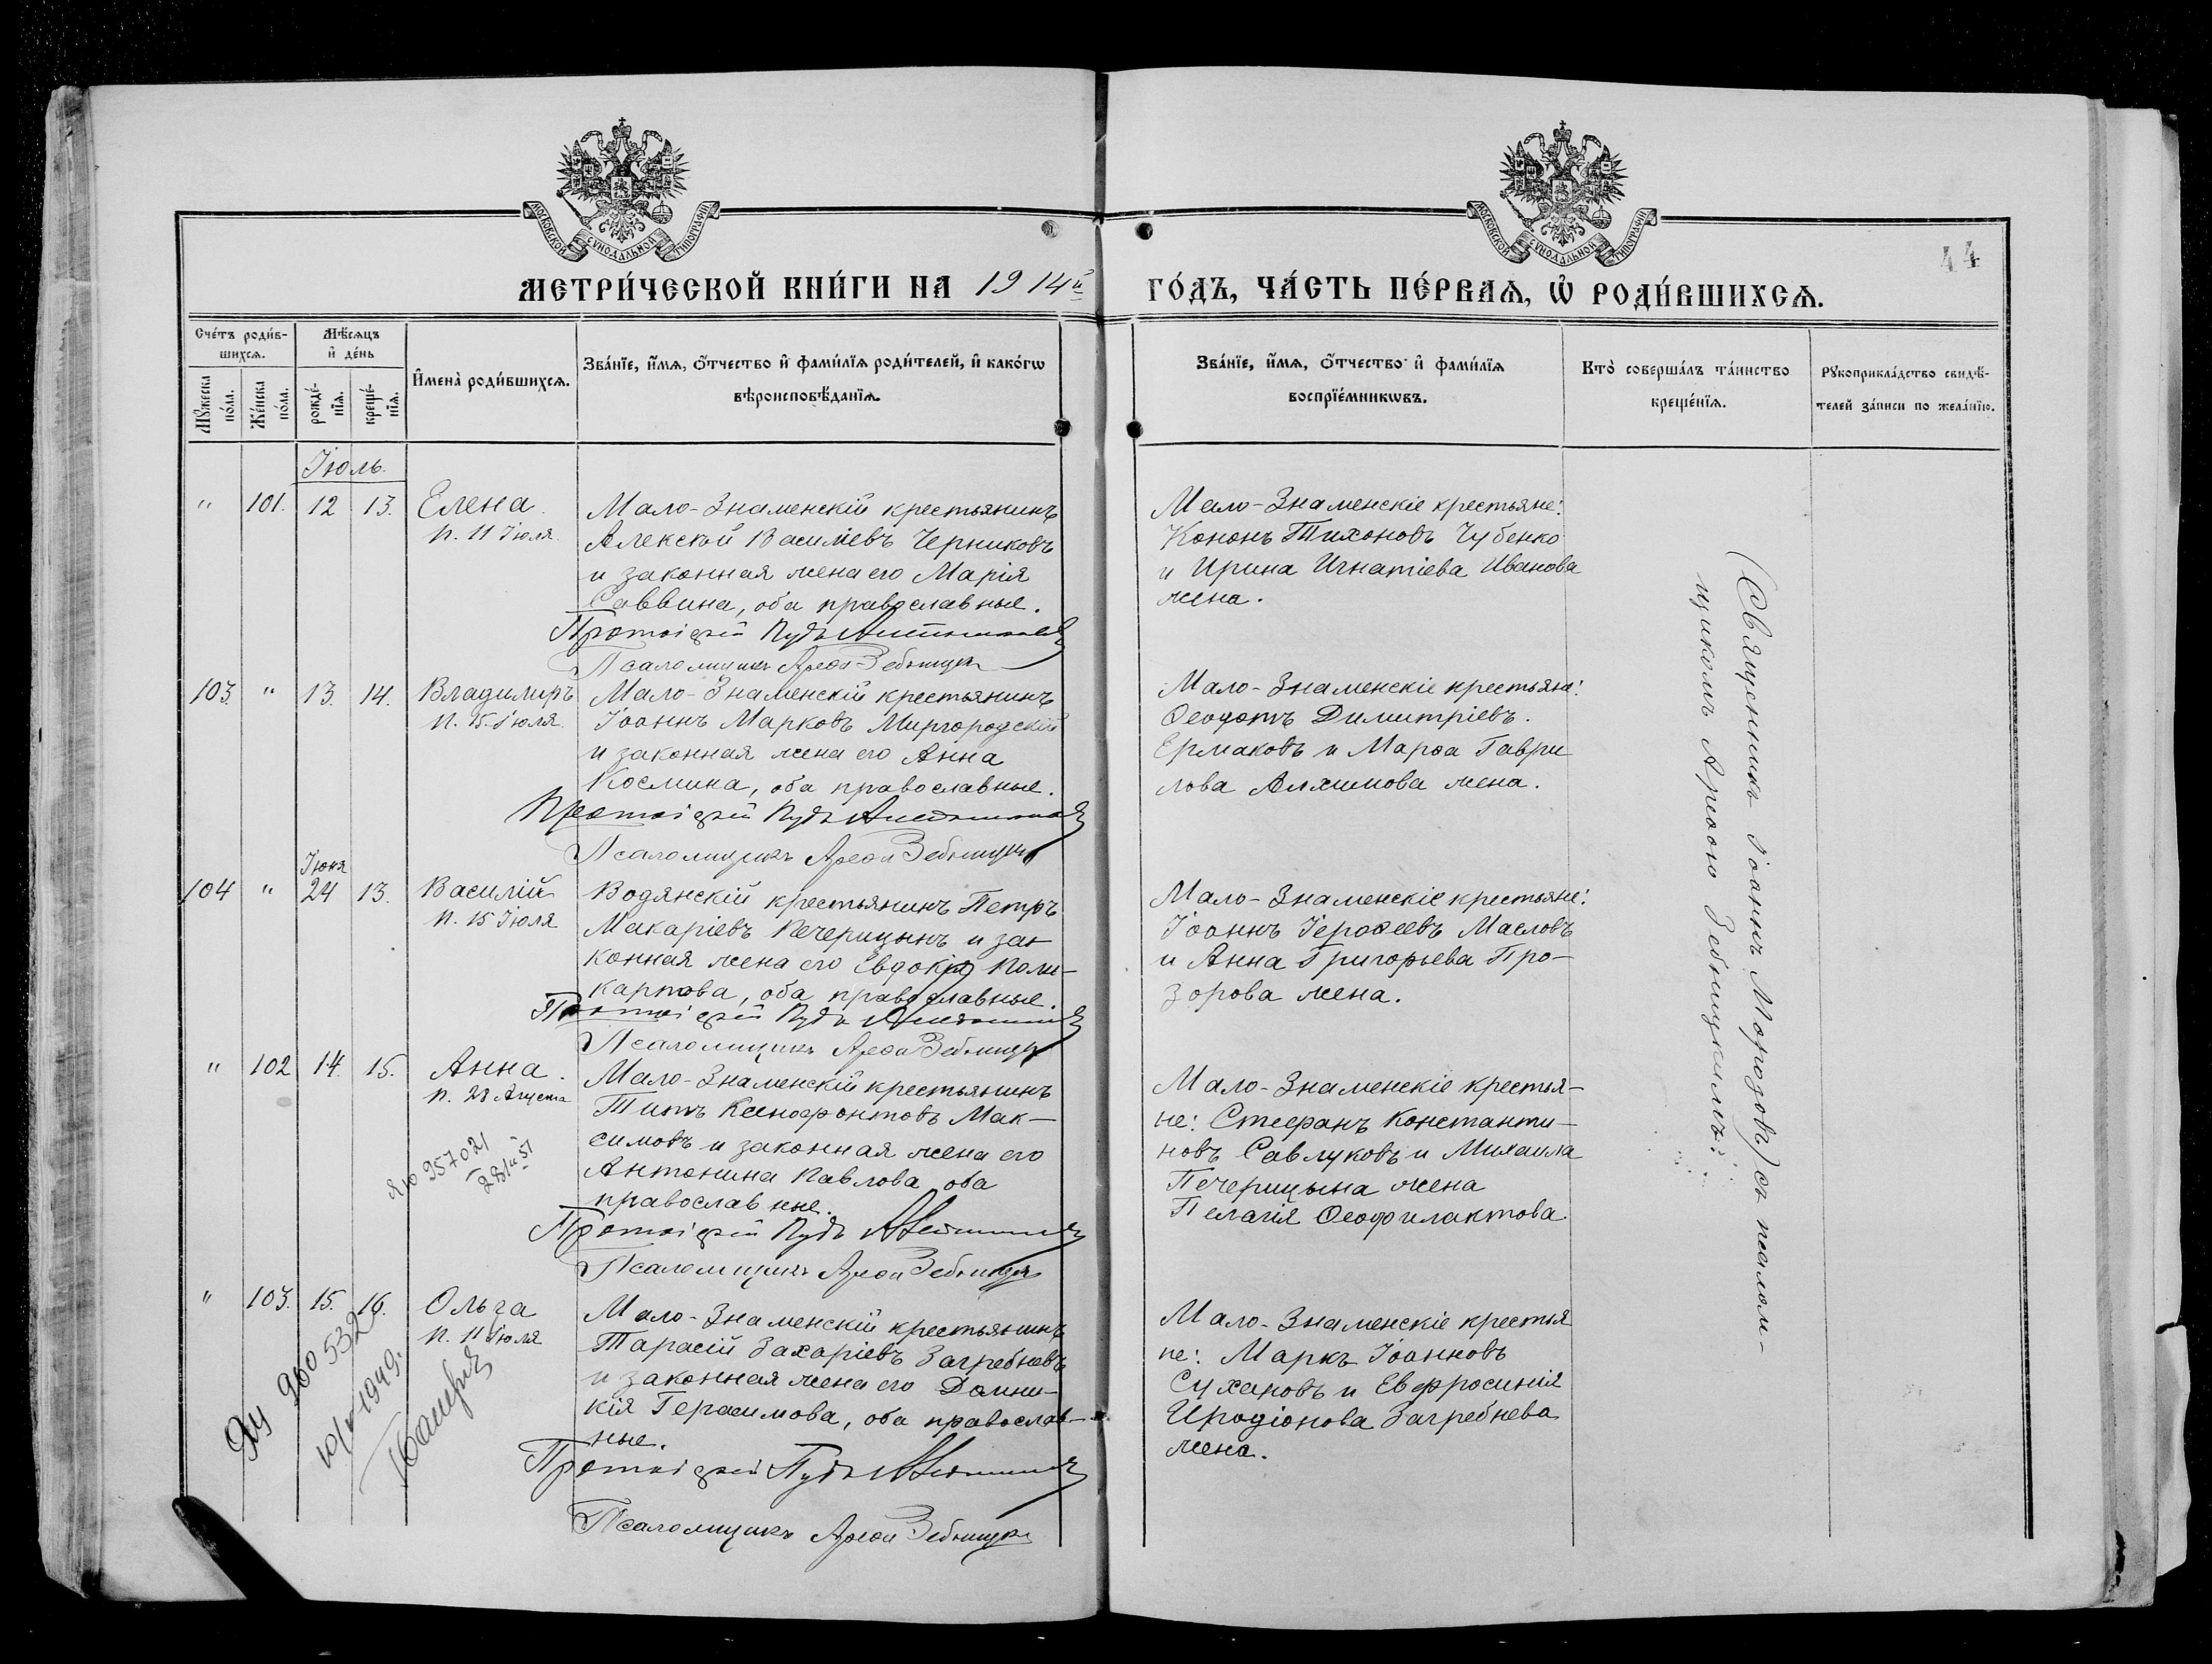 МОСКОВСКОЙ СУНОДАЛЬНОЙ ТИПОГРАФІИ
МОСКОВСКОЙ СУНОДАЛЬНОЙ ТИПОГРАФІИ
44
МЕТРИ́ЧЕСКОЙ КНИ́ГИ НА 1914й ГО́ДЪ, ЧА́СТЬ ПЕ́РВАѦ, Ѽ РОДИ́ВШИХСѦ.
Сче́тъ роди́в-
шихсѧ.
Мѣ́сѧцъ
и҆ де́нь
Мꙋ́жеска
по́ла.
Же́нска
по́ла.
рожде́-
нїѧ.
креще́-
нїѧ.
И҆мена̀ роди́вшихсѧ.
Зва́нїе, и҆́мѧ, ѻ҆́тчество и҆ фами́лїѧ роди́телей, и҆ како́гѡ
вѣроисповѣ́данїѧ.
Зва́нїе, и҆́мѧ, ѻ҆́тчество и҆ фами́лїѧ
воспрїе́мникѡвъ.
Кто̀ соверша́лъ та́инство
креще́нїѧ.
Рꙋкоприкла́дство свидѣ́-
телей за́писи по жела́нїю.
Іюль.
" 101. 12 13. Елена.
п. 11 Іюля.
Мало-Знаменскій крестьянинъ
Алексѣй Василіевъ Черниковъ
и законная жена его Марія
Саввина, оба православные.
Протоіерей Пудъ
Псаломщикъ Арефа Зебницкій
Мало-Знаменскіе крестьяне:
Кононъ Тихоновъ Чубенко
и Ирина Игнатіева Иванова
жена.
103. " 13. 14. Владимиръ
п. 15. Іюля.
Мало-Знаменскій крестьянинъ
Іоаннъ Марковъ Миргородскій
и законная жена его Анна
Космина, оба православные.
Протоіерей Пудъ
Псаломщикъ Арефа Зебницкій
Мало-Знаменскіе крестьяне:
Ѳеодотъ Димитріевъ.
Ермаковъ и Марѳа Гаври
лова Алхимова жена.
Іюня
104 " 24 13. Василій
п. 15 Іюля
Водянскій крестьянинъ Петръ
Макаріевъ Печерицынъ и за-
конная жена его Евдокія Поли-
карпова, оба православные.
Протоіерей Пудъ
Псаломщикъ Арефа Зебницкій
Мало-Знаменскіе крестьяне:
Іоаннъ Іероѳеевъ Масловъ
и Анна Григорьева Про-
зорова жена.
" 102 14. 15. Анна.
п. 28 Августа
957021
Мало-Знаменскій крестьянинъ
Титъ Ксенофонтовъ Мак-
симовъ и законная жена его
Антонина Павлова оба
православные.
Протоіерей Пудъ
Псаломщикъ Арефа Зебницкій
Мало-Знаменскіе крестья-
не: Стефанъ Константи-
новъ Савлуковъ и Михаила
Печерицына жена
Пелагія Ѳеофилактова.
" 103. 15. 16. Ольга
п. 11 Іюля
960532
1949.
Мало-Знаменскій крестьянинъ
Тарасій Захаріевъ Загребневъ
и законная жена его Домни-
кія Герасимова, оба православ-
ные.
Протоіерей Пудъ
Псаломщикъ Арефа Зебницкій
Мало-Знаменскіе крестья
не: Маркъ Іоанновъ
Сухановъ и Евфросинія
Иродіонова Загребнева
жена.
(Священникъ Іоаннъ Морозовъ) съ псалом-
щикомъ Арефою Зебницкимъ.